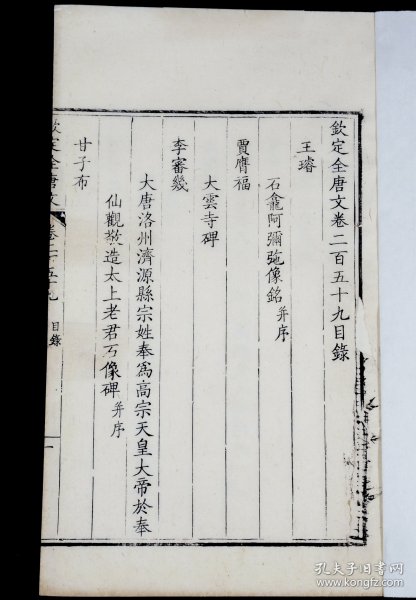 欽定全唐文卷二百五十九目錄
王璿
石龕阿彌陁像銘并序
賈膺福
大雲寺碑
李審幾
大唐洛州濟源縣宗姓奉爲高宗天皇大帝於奉
仙觀敬造太上老君石像碑并序
甘子布
欽定全唐文 卷二百五十九 目錄 一
孔夫子旧书网
www.kongfz.com